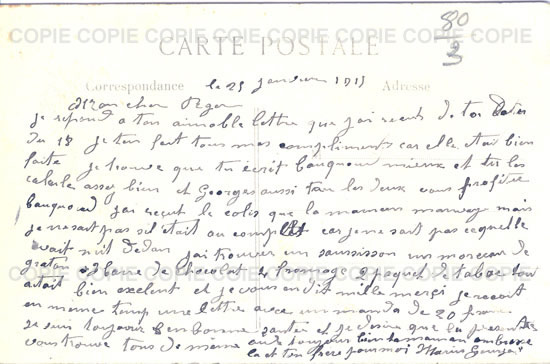 COPIE COPIE COPIE COPIE COPIE COPIE COPIE
80
3
CARTE POSTALE
Correspondance le 25 janvier 1915 Adresse
Mon cher
je repond a ton aimable lettre que j'ai recut de toi
du 18 je ten fait tous mes compliments car elle etait bien
faite je trouve que tu ecrit bauquoup mieux et tu les
calcule assez bien et Georges aussi tous les deux vous profitée
bauquoud j'ai recut le colis que la maman mais
je ne sait pas s'il etait au complet car je ne sait pas ce quelle
avait mit dedan j'ai trouver un saussisson un morceau de
2 barre de chocolat fromage paquet de tabac tou
etait bien exelent et je vous en dit mille merci je recoit
en meme temp une lettre avec un manda de 20 fran
je suis toujour en bonne santer et je desire que la presente
vous trouve tous de meme toujour bien la maman
la et ton frere pour moi